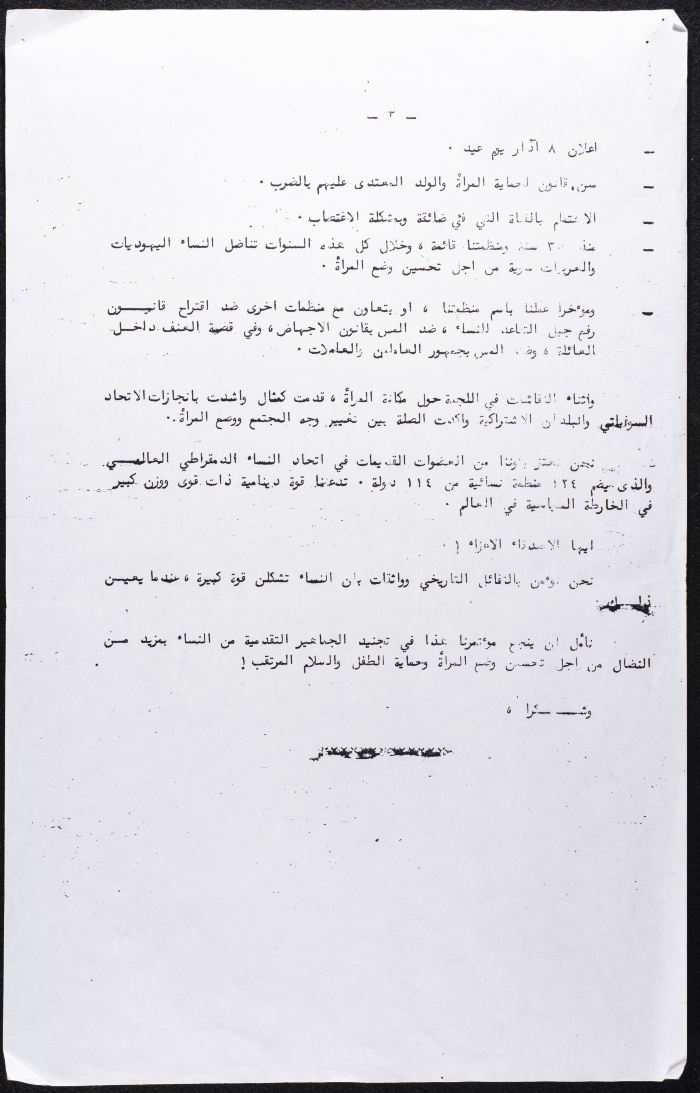 - ٣ -
- اعلان ٨ آذار يوم عيد ٠
- سن قانون لحماية المرأة والولد المعتدى عليهم بالضرب ٠
- الاهتمام بالفتاة التي في ضائقة وبمشكلة الاغتصاب ٠
- منذ ٣٠ سنة ومنظمتنا قائمة ، وخلال كل هذه السنوات تناضل النساء اليهوديات
والعربيات سوية من اجل تحسين وضع المرأة ٠
- ومؤخرا عملنا باسم منظمتنا ، او بتعاون مع منظمات اخرى ضد اقتراح قانـــون
رفع جيل التقاعد للنساء ، ضد المس بقانون الاجهاض ، وفي قضية العنف داخـــل
العائلة ، وضد المس بجمهور العاملين والعاملات ٠
واثناء النقاشات في اللجنة حول مكانة المرأة ، قدمت كمثال واشدت بانجازات الاتحاد
السوفياتي والبلدان الاشتراكية واكدت الصلة بين تغيير وجه المجتمع ووضع المرأة ٠
نحن نعتز باننا من العضوات القديمات في اتحاد النساء الدمقراطي العالمـــي
والذي يضم ١٢٤ منظمة نسائية من ١١٤ دولة ٠ قوة دينامية ذات قوى ووزن كبير
في الخارطة السياسية في العالم ٠
ايها الاصدقاء الاعزاء !
نحن نؤمن بالتفائل التاريخي وواثقات بان النساء تشكلن قوة كبيرة ، عندما يعيـــن
ذلـــك
نأمل ان ينجح مؤتمرنا هذا في تجنيد الجماهير التقدمية من النساء بمزيد مـــن
النضال من اجل تحسين وضع المرأة وحماية الطفل والسلام المرتقب !
وشـــكرا ،